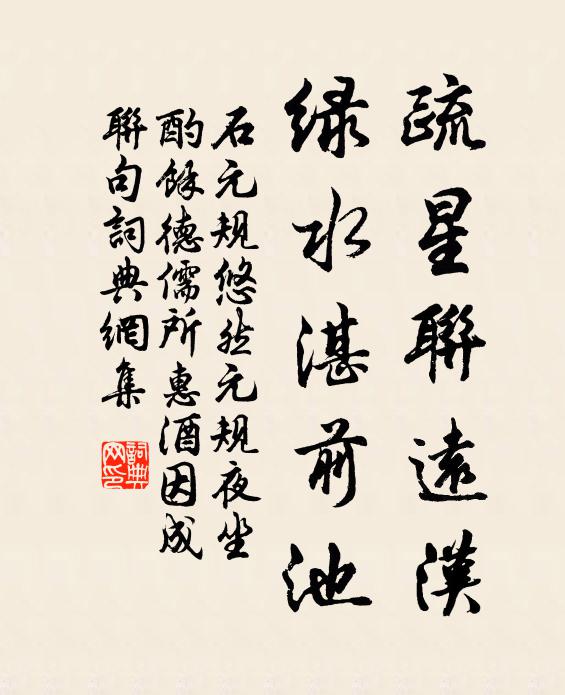 疏星聯遠漢
綠水湛前池
石元規悠然元規夜坐
酌餘德儒所惠酒因成
聯句詞典網集
詞典
网印